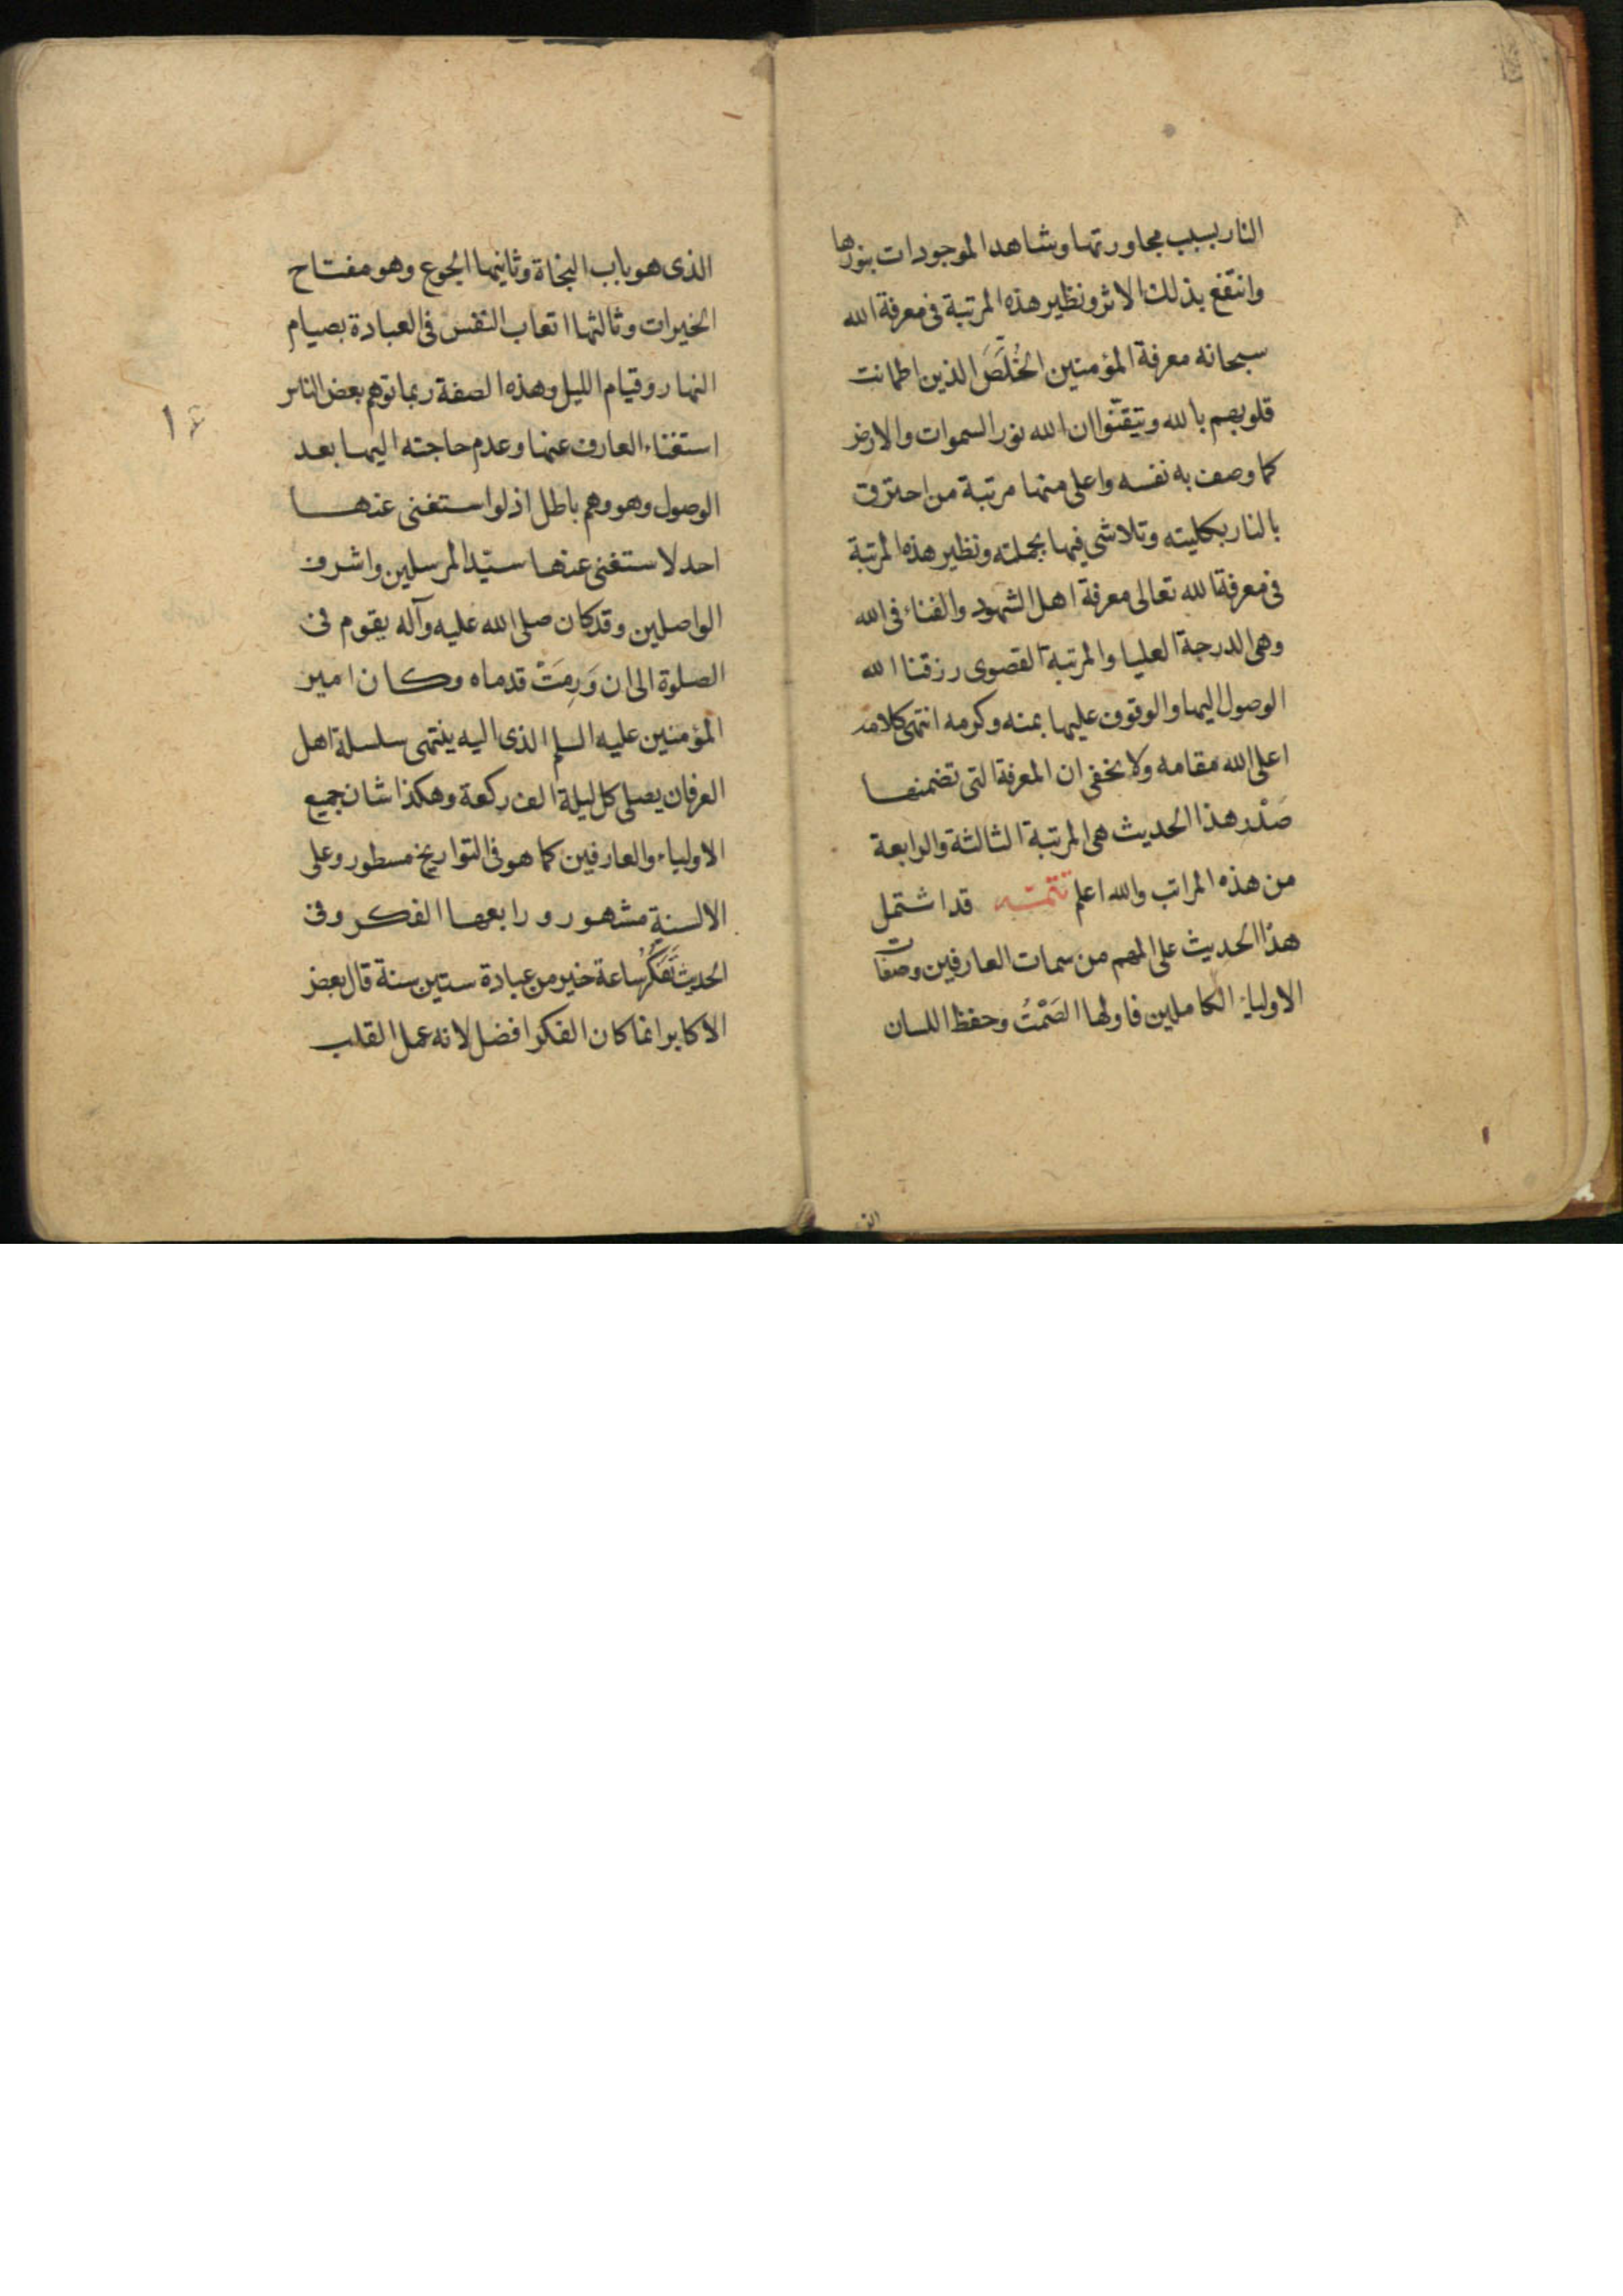 النار بسبب مجاورتها وشاهد الموجودات بنورها
وانتفع بذلك الاثر ونظير هذه المرتبة في معرفة الله
سبحانه معرفة المؤمنين الخُلَّصَ الذين اطمانت
قلوبهم بالله وتيقّنوا ان الله نور السموات والارض
كما وصف به نفسه واعلى منها مرتبة من احترق
بالنار بكليته وتلاشى فيها بجملته ونظير هذه المرتبة
في معرفة الله تعالى معرفة اهل الشهود والفناء في الله
وهي الدرجة العليا والمرتبة القصوى رزقنا الله
الوصول اليها والوقوف عليها بمنه وكرمه انتهى كلامه
اعلى الله مقامه ولا يخفى ان المعرفة التي تضمنها
صَدْر هذا الحديث هي المرتبة الثالثة والرابعة
من هذه المراتب والله اعلم تتمّه قد اشتمل
هذا الحديث على المهم من سمات العارفين وصفات
الاولياء الكاملين فاولها الصَمْتُ وحفظ اللسان
الذى هو باب النجاة وثانيها الجوع وهو مفتاح
الخيرات وثالثها اتعاب النفس في العبادة بصيام
النهار وقيام الليل وهذه الصفة ربما توهم بعض الناس
استغناء العارف عنها وعدم حاجته اليها بعد
الوصول وهو وهم باطل اذ لو استغنى عنها
احد لاستغنى عنها سيّد المرسلين واشرف
الواصلين وقد كان صلى الله عليه وآله يقوم في
الصلوة الى ان وَرِمَتْ قدماه وكان امير
المؤمنين عليه السلم الذى اليه ينتهى سلسلة اهل
العرفان يصلى كل ليلة الف ركعة وهكذا شان جميع
الاولياء والعارفين كما هو في التواريخ مسطور وعلى
الالسنةِ مشهور ورابعها الفكر وفى
الحديث تَفَكُّرُ ساعة خير من عبادة ستين سنة قال بعض
الاكابر انما كان الفكر افضل لانه عمل القلب